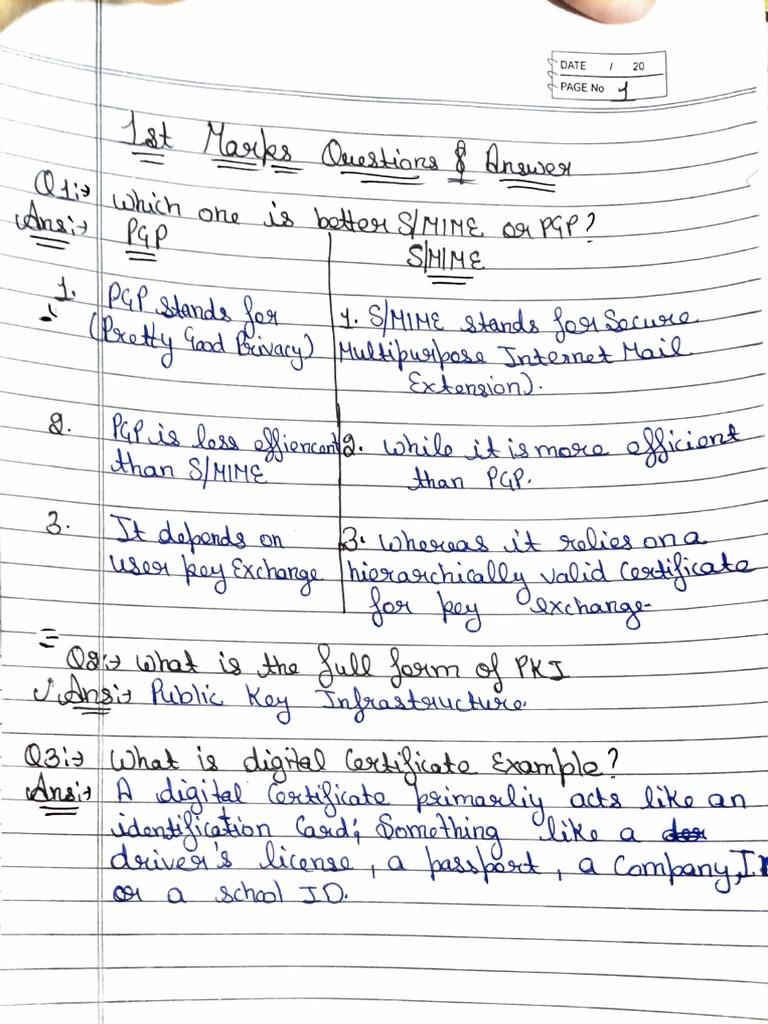 DATE / 20
PAGE No 1
1st Marks Questions & Answer
Q1:→ which one is better S/MIME or PGP?
Ans:→ PGP S/MIME
1. PGP stands for
(Pretty Good Privacy)
1. S/MIME stands for Secure
Multipurpose Internet Mail
Extension).
2. PGP is less effiencent
than S/MIME
2. while it is more efficient
than PGP.
3. It depends on
user key Exchange
3. whereas it relies on a
hierarchically valid Certificate
for key exchange-
Q2:→ what is the full form of PKI
Ans:→ Public Key Infrastructure.
Q3:→ What is digital Certificate Example?
Ans:→ A digital Certificate primarliy acts like an
identification Card; Something like a
driver's license, a passport, a Company, I
or a school ID.